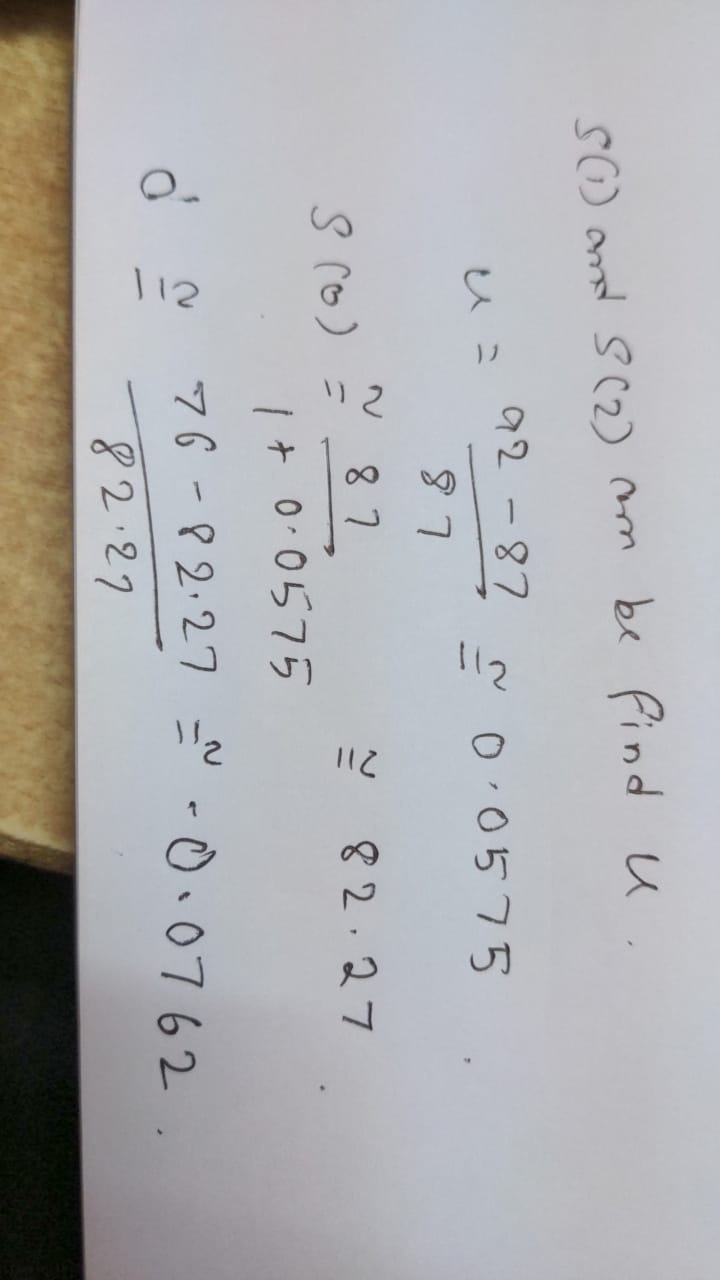 S(1) and S(2) can be find u.
u = 92 - 87 / 87 ≅ 0.0575.
S(0) ≅ 87 / 1 + 0.0575 ≅ 82.27.
d ≅ 76 - 82.27 / 82.27 ≅ -0.0762.